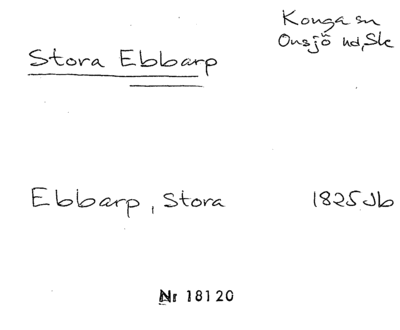 Konga sn
Onsjö hd, Sk
Stora Ebbarp
Ebbarp, Stora
1825 Jb
Nr 18120